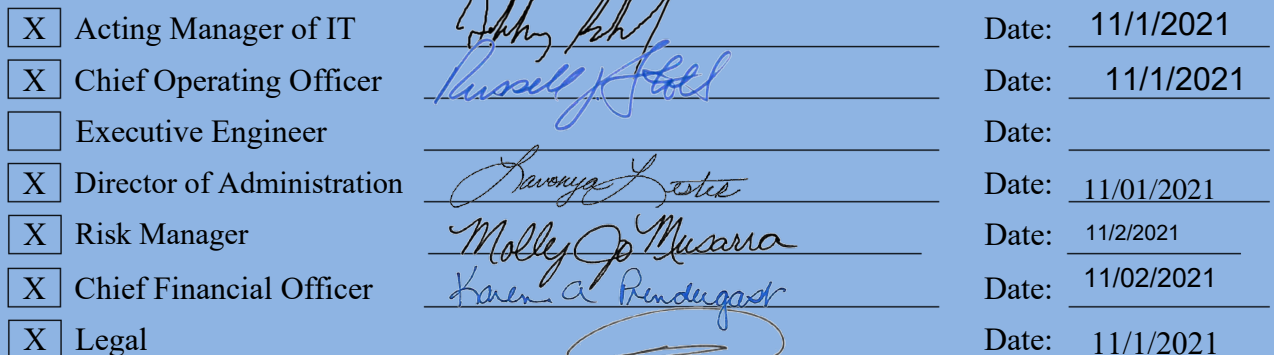 X Acting Manager of IT Date: 11/1/2021
X Chief Operating Officer Russell J Date: 11/1/2021
Executive Engineer Date:
X Director of Administration Lavonya Lester Date: 11/01/2021
X Risk Manager Molly Jo Musarra Date: 11/2/2021
X Chief Financial Officer Karen A Prendergast Date: 11/02/2021
X Legal Date: 11/1/2021